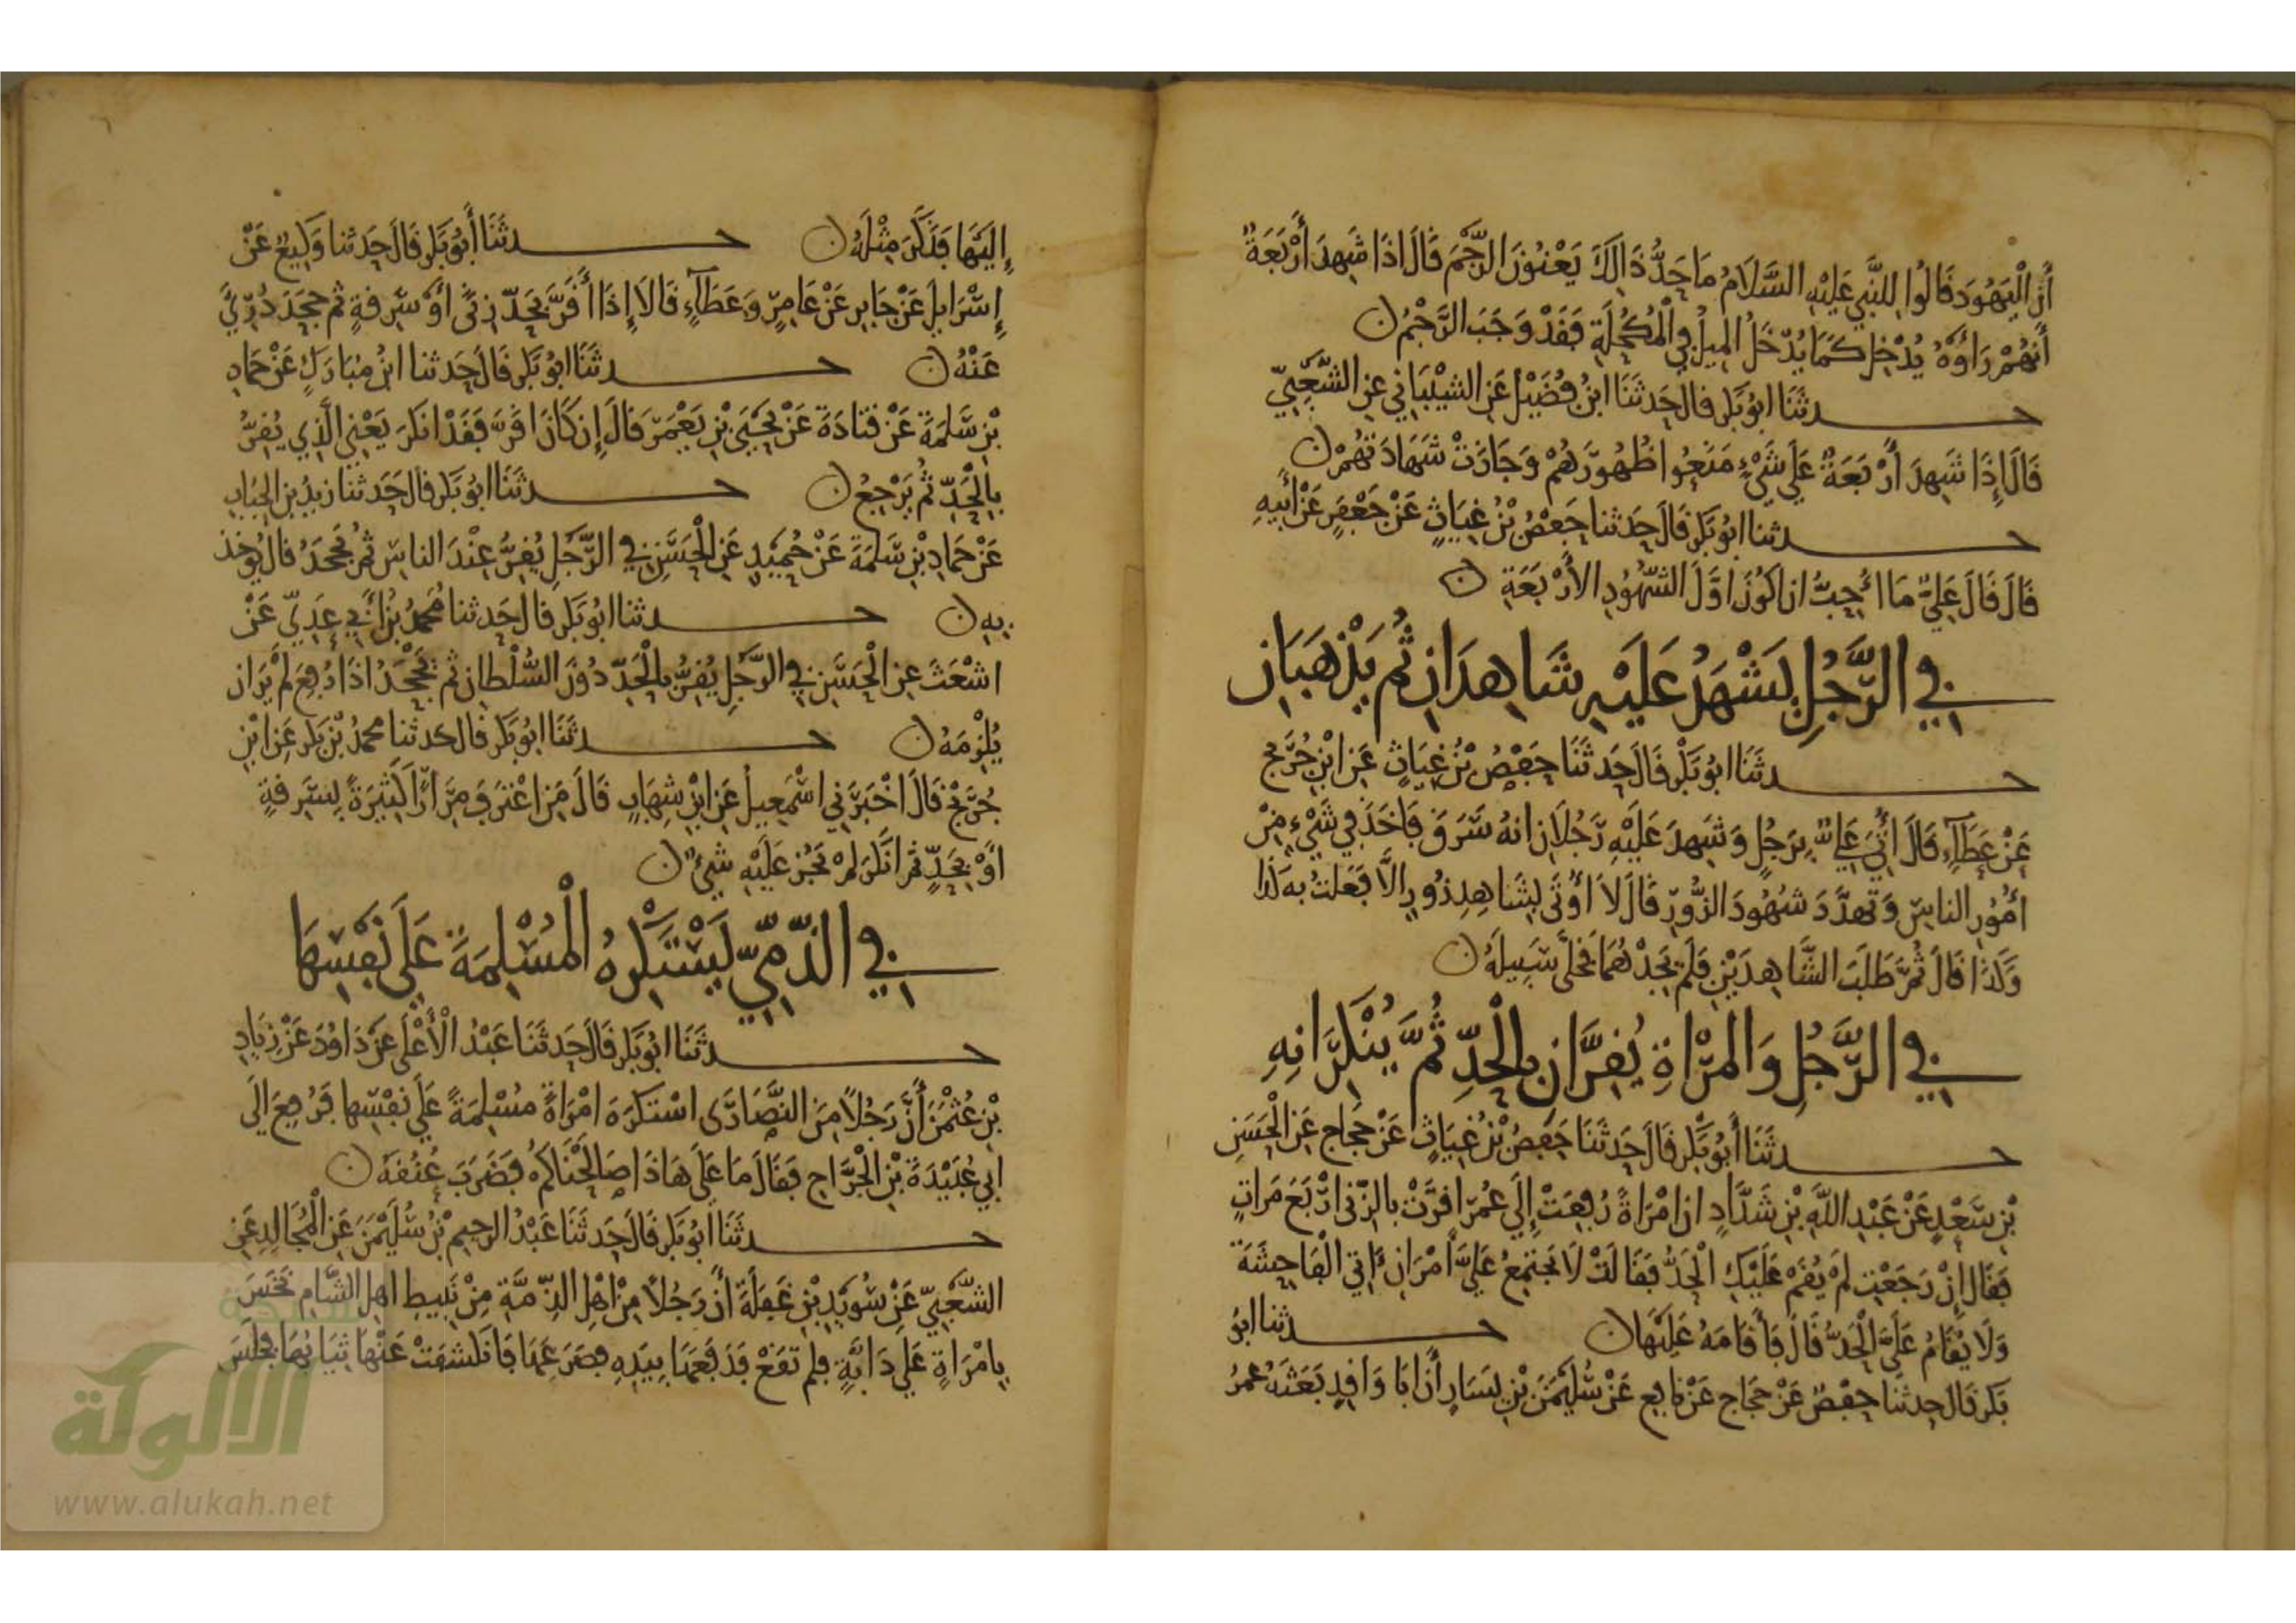 أَنَّ الْيَهُودَ قَالُوا لِلنَّبِيِّ عَلَيْهِ السَّلَامُ مَا حَدُّ ذَالِكَ يَعْنُونَ الرَّجْمَ قَالَ اذَا شَهِدَ أَرْبَعَةٌ
أَنَّهُمْ رَاوْهُ يُدْخِلُ كَمَا يُدْخَلُ الْمِيلُ فِي الْمُكْحُلَةِ فَقَدْ وَجَبَ الرَّجْمُ ن
حدثَنَا ابُو بَكْرٍ قال حَدثَنَا ابْنُ فُضَيْلٍ عَنِ الشَّيْبَانِي عَنِ الشَّعْبِيِّ
قَالَ إِذَا شَهِدَ أَرْبَعَةٌ عَلَى شَيْءٍ مَنَعُوا ظُهُورَهُمْ وَجَازَتْ شَهَادَتُهُمْ ن
حدثنا ابُو بَكْرٍ قَالَ حَدثنا حَفْصُ بْنُ غِيَاثٍ عَنْ جَعْفَرٍ عَنْ أَبِيهِ
قَالَ قَالَ عَلِيٌّ مَا أُحِبُّ ان اكُونَ اوَّلَ الشُّهُودِ الأَرْبَعَةِ ن
فِي الرَّجُلِ يَشْهَدُ عَلَيْهِ شَاهِدَانِ ثُمَّ يَذْهَبَانِ
حدثَنَا ابُو بَكْرٍ قَالَ حَدثَنَا حَفْصُ بْنُ غِيَاثٍ عَنِ ابْنِ جُرَيْجٍ
عَنْ عَطَآءٍ قَالَ أُتِيَ عَلِيٌّ بِرَجُلٍ وَشَهِدَ عَلَيْهِ رَجُلَانِ انهُ سَرَقَ فَاخَذَ فِي شَيْءٍ مِنْ
امُورِ الناسِ وَتَهَدَّدَ شُهُودَ الزُّورِ قَالَ لاَ اوتَى بِشَاهِدِ زُورٍ الاَّ فَعَلتُ بِهِ كَذَا
وَكَذَا قَالَ ثُمَّ طَلَبَ الشَّاهِدَيْنِ فَلَمْ يَجِدْهُمَا فَخَلَّى سَبِيلَهُ ن
فِي الرَّجُلِ وَالمَرْاةِ يُقِرَّانِ بِالْحَدِّ ثُمَّ يُنْكِرَانِهِ
حدثَنَا أَبُو بَكْرٍ قَالَ حَدثَنَا حَفصُ بْنُ غِيَاثٍ عَنْ حَجَّاجٍ عَنِ الْحَسَنِ
بْنِ سَعْدٍ عَنْ عَبْدِ اللَّهِ بْنِ شَدَّادٍ ان امْرَاةً رُفِعَتْ إِلَى عُمَرَ اقَرَّتْ بِالزِّنَى ارْبَعَ مَرَاتٍ
فَقَالَ إِنْ رَجَعْتِ لَمْ يُقَمْ عَلَيْكِ الْحَدُّ فَقَالَتْ لَا يَجْتَمِعُ عَلَيَّ أَمْرَانِ ءَاتِي الْفَاحِشَةَ
وَلَا يُقَامُ عَلَيَّ الْحَدُّ قَالَ فَأَقَامَهُ عَلَيْهَا ن حدثنا ابُو
بَكر قَالَ حدثنا حفصٌ عَنْ حَجَّاجٍ عَنْ نَافِعٍ عَنْ سُلَيْمَنَ بْنِ يَسَارٍ أَنَّ ابَا وَاقِدٍ بَعَثَهُ عُمَرُ
إِلَيْهَا فَذَكَرَ مِثْلَهُ ن حدثَنَا أَبُو بَكْرٍ قَالَ حَدثنا وَكِيعٌ عَنْ
إِسْرَايلَ عَنْ جَابِرٍ عَنْ عَامِرٍ وَعَطَآءٍ قَالاَ إِذَا أَقَرَّ بِحَدِّ زِنًى أَوْ سَرِقَةٍ ثم جَحَدَ دُرِئَ
عَنْهُ ن حدثَنَا ابُو بَكْرٍ قَالَ حَدثنا ابْنُ مُبَارَكٍ عَنْ حَمَادِ
بْنِ سَلَمَةَ عَنْ قَتَادَةَ عَنْ يَحْيَى بْنِ يَعْمَرَ قَالَ إِن كَانَ اقَرَّ فَقَدْ انكَرَ يَعْنِي الَّذِي يُقِرُّ
بِالْحَدِّ ثُمَّ يَرْجِعُ ن حدثَنَا ابُو بَكْرٍ قال حَدثنا زيدُ بن الحُبَابِ
عَنْ حَمَادِ بْنِ سَلَمَةَ عَنْ حُمَيْدٍ عَنِ الْحَسَنِ فِي الرَّجُلِ يُقِرُّ عِنْدَ الناسِ ثم يَجْحَدُ قال يُوخذ
بِهِ ن حدثنا ابُو بَكْرٍ قال حَدثنا مُحَمدُ بْنُ أَبِي عَدِيٍّ عَنْ
اشْعَثَ عن الْحَسَنِ فِي الرَّجُلِ يُقِرُّ بِالْحَدِّ دُونَ السُّلْطَانِ ثم يَجْحَدُ اذَا رُفِعَ لَمْ يَرَ ان
يُلْزِمَهُ ن حدثَنَا ابُو بَكْرٍ قَالَ حدثنا محمدُ بْنُ بَكْرٍ عَنِ ابْنِ
جُرَيْجٍ قَالَ اخْبَرَنِي اسْمَعِيلُ عَنِ ابْنِ شِهَابٍ قَالَ مَنِ اعْتَرَفَ مِرَارًا كَثِيرَةً بِسَرِقَةٍ
اوْ بِحَدٍّ ثم انْكَرَ لَمْ يَجُزْ عَلَيْهِ شَيْءٌ ن
فِي الذِّمِّيِّ يَسْتَكْرِهُ الْمُسْلِمَةَ عَلَى نَفْسِهَا
حدثَنَا ابُو بَكْرٍ قَالَ حَدثَنَا عَبْدُ الْأَعْلَى عَنْ دَاوُدَ عَنْ زِيَادِ
بْنِ عُثْمَنَ أَنَّ رَجُلاً مِنَ النَّصَارَى اسْتَكْرَهَ امْرَاةً مُسْلِمَةً عَلَى نَفْسِهَا فَرُفِعَ الَى
ابِي عُبَيْدَةَ بْنِ الْجَرَّاحِ فَقَالَ مَا عَلَى هَاذَا صَالَحْنَاكُمْ فَضَرَبَ عُنُقَهُ ن
حدثَنَا ابُو بَكْرٍ قَالَ حَدثَنَا عَبْدُ الرحِيمِ بْنُ سُلَيْمَنَ عَنِ الْمُجَالِدِ عَنِ
الشَّعْبِيِّ عَنْ سُوَيْدِ بْنِ غَفَلَةَ أَنَّ رَجُلاً مِنْ اهْلِ الذِّمَّةِ مِنْ نَبِيطِ اهل الشَّامِ نَخَسَ
بِامْرَاةٍ عَلَى دَابَّةٍ فلم تَقَعْ فَدَفَعَهَا بِيَدِهِ فصَرَعَهَا فَانْكَشَفَتْ عَنْهَا ثِيَابُهَا فَجَلَسَ
الألوكة
www.alukah.net